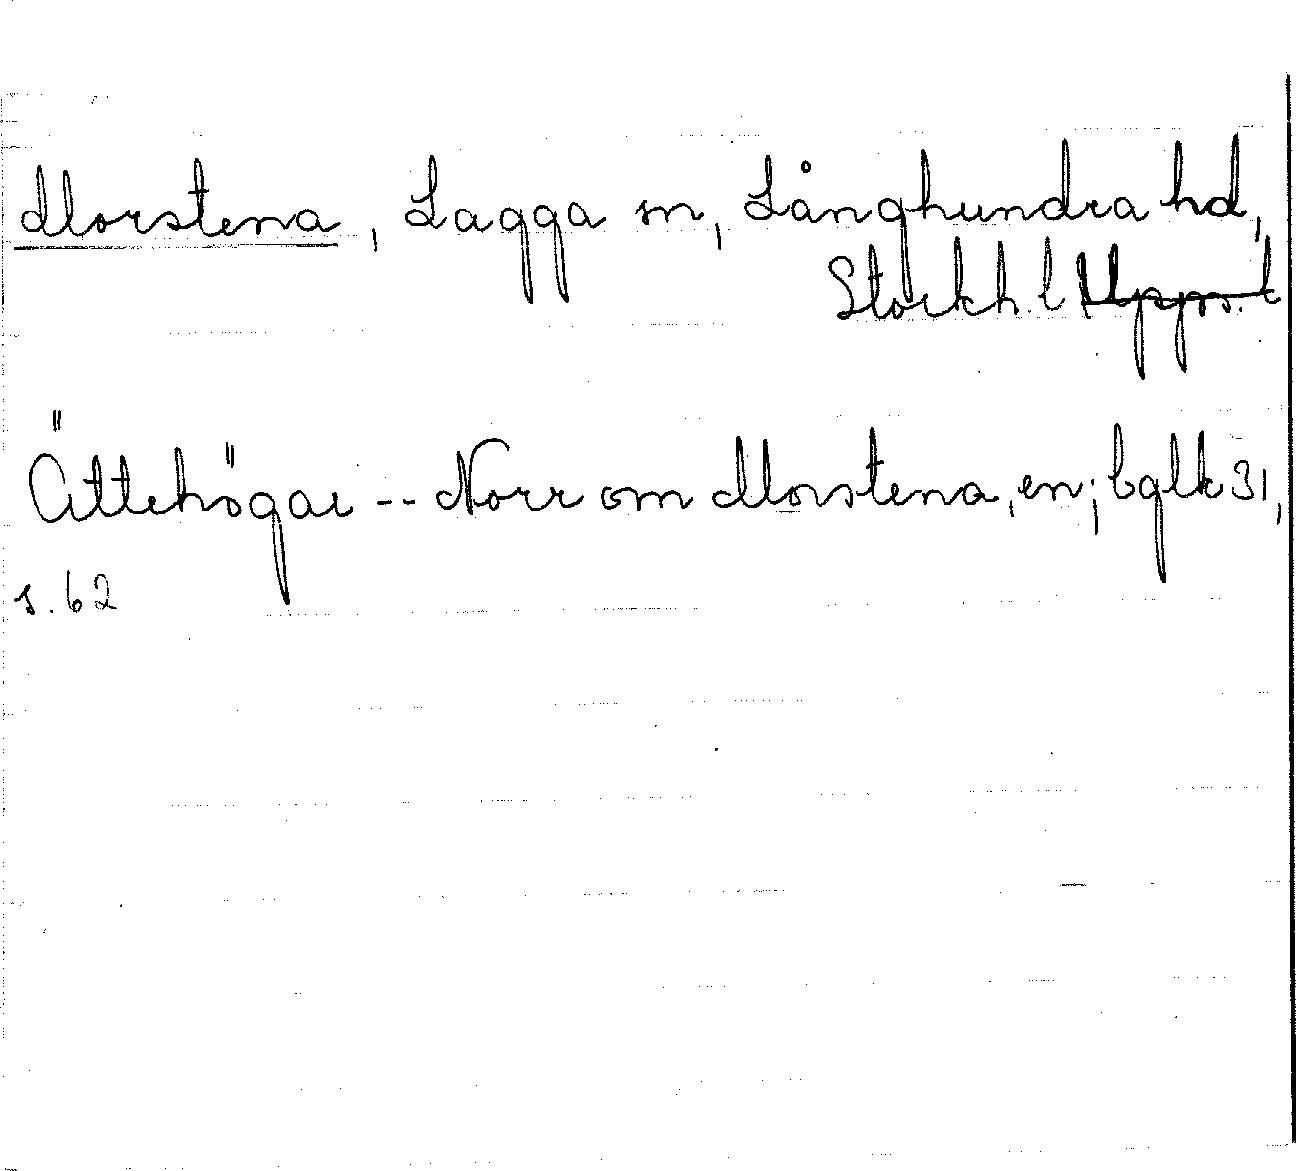 Morstena, Lagga sn, Långhundra hd,
Stockh. l Upps. l
Ättehögar -- Norr om Morstena, en; bglk 31,
s. 62